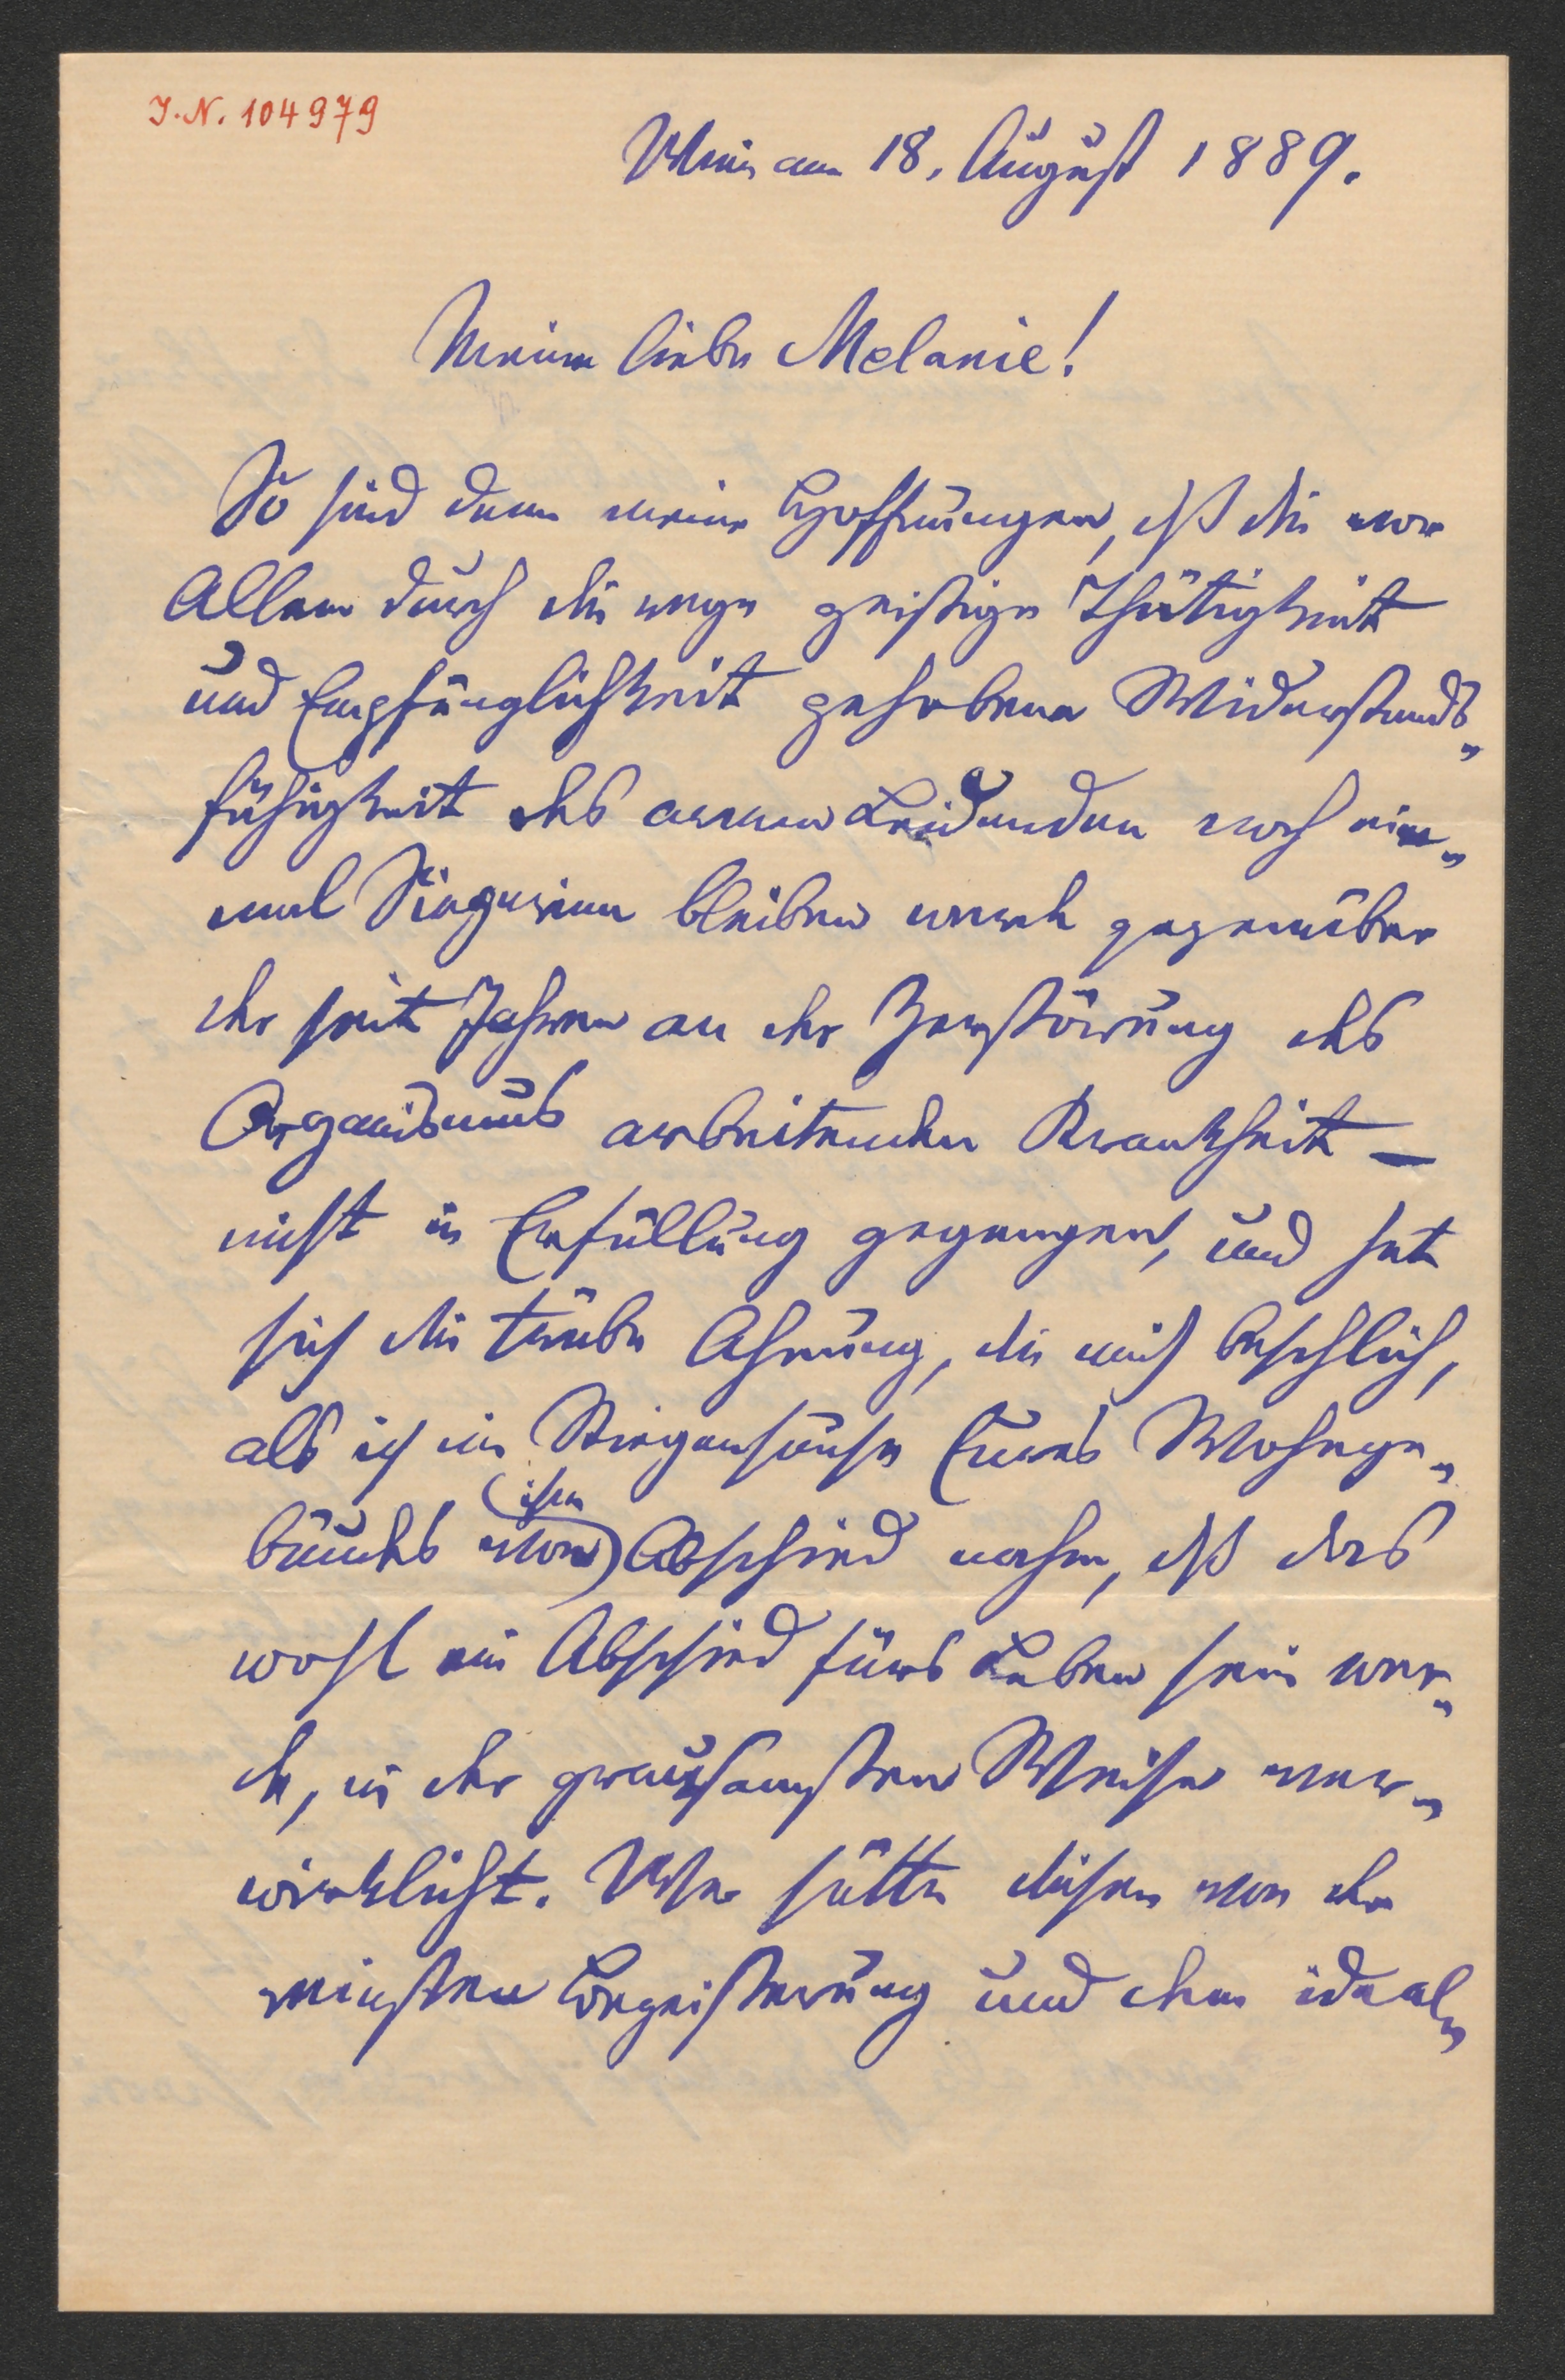 J.N. 104979
Wien am 18. August 1889.
Meine liebe Melanie!
So sind denn meine Hoffnungen, daß die vor
Allem durch die rege geistige Thätigkeit
und Empfänglichkeit gehobene Widerstands„
fähigkeit des armen Leidenden noch ein„
mal Siegerinn bleiben werde gegenüber
der seit Jahren an der Zerstörung des
Organismus arbeitenden Krankheit —
nicht in Erfüllung gegangen, und hat
sich die trübe Ahnung, die mich beschlich,
als ich im Stiegenhause Eures Wohnge„
bäudes von ihm Abschied nahm, daß das
wohl ein Abschied fürs Leben sein wer„
de, in der grausamsten Weise ver„
wirklicht. Wer hätte diesen von der
reinsten Begeisterung und dem ideal„